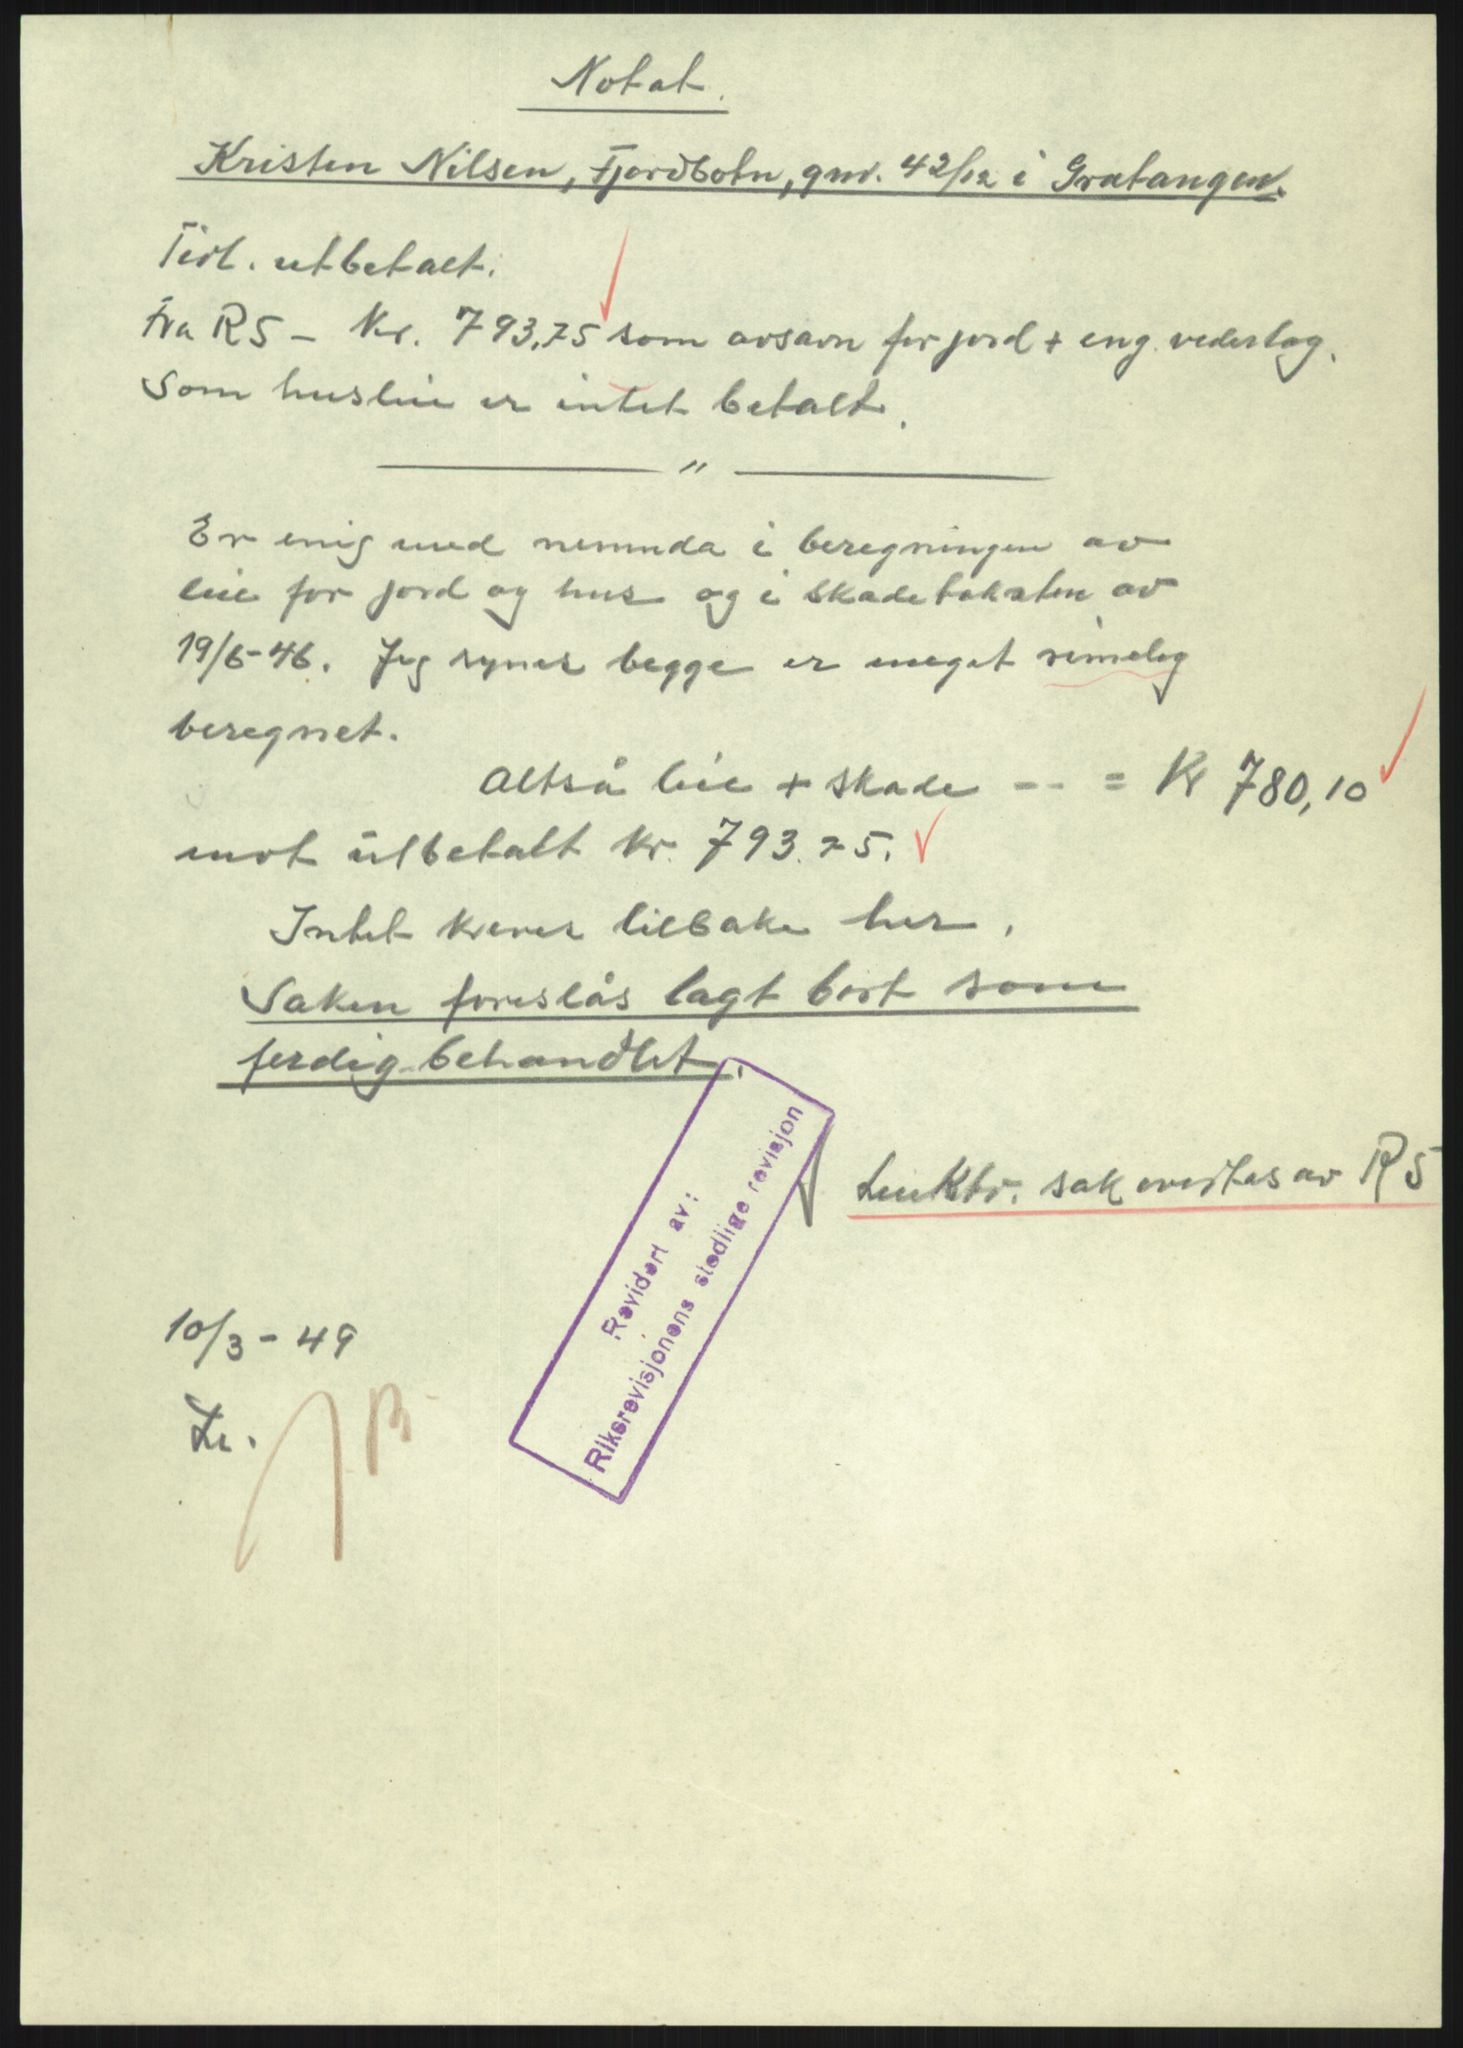 Notat.
Kristen Nilsen, Fjordbotn, gnr. 42/12 i Gratangen.
Tidl. utbetalt.
Fra R5 - Kr. 793,75 som avsavn for jord + eng. vederlag.
Som husleie er intet betalt.
"
Er enig med nemnda i beregningen av
leie for jord og hus og i skadetaksten av
19/6-46. Jeg synes begge er meget rimelig
beregnet.
Altså leie + skade -- = Kr 780,10
mot utbetalt Kr. 793.75.
Intet kreves tilbake her.
Saken foreslås lagt bort som
ferdig-behandlet.
sak av R5
Revidert av:
Riksrevisjonens stedlige revisjon
10/3-49